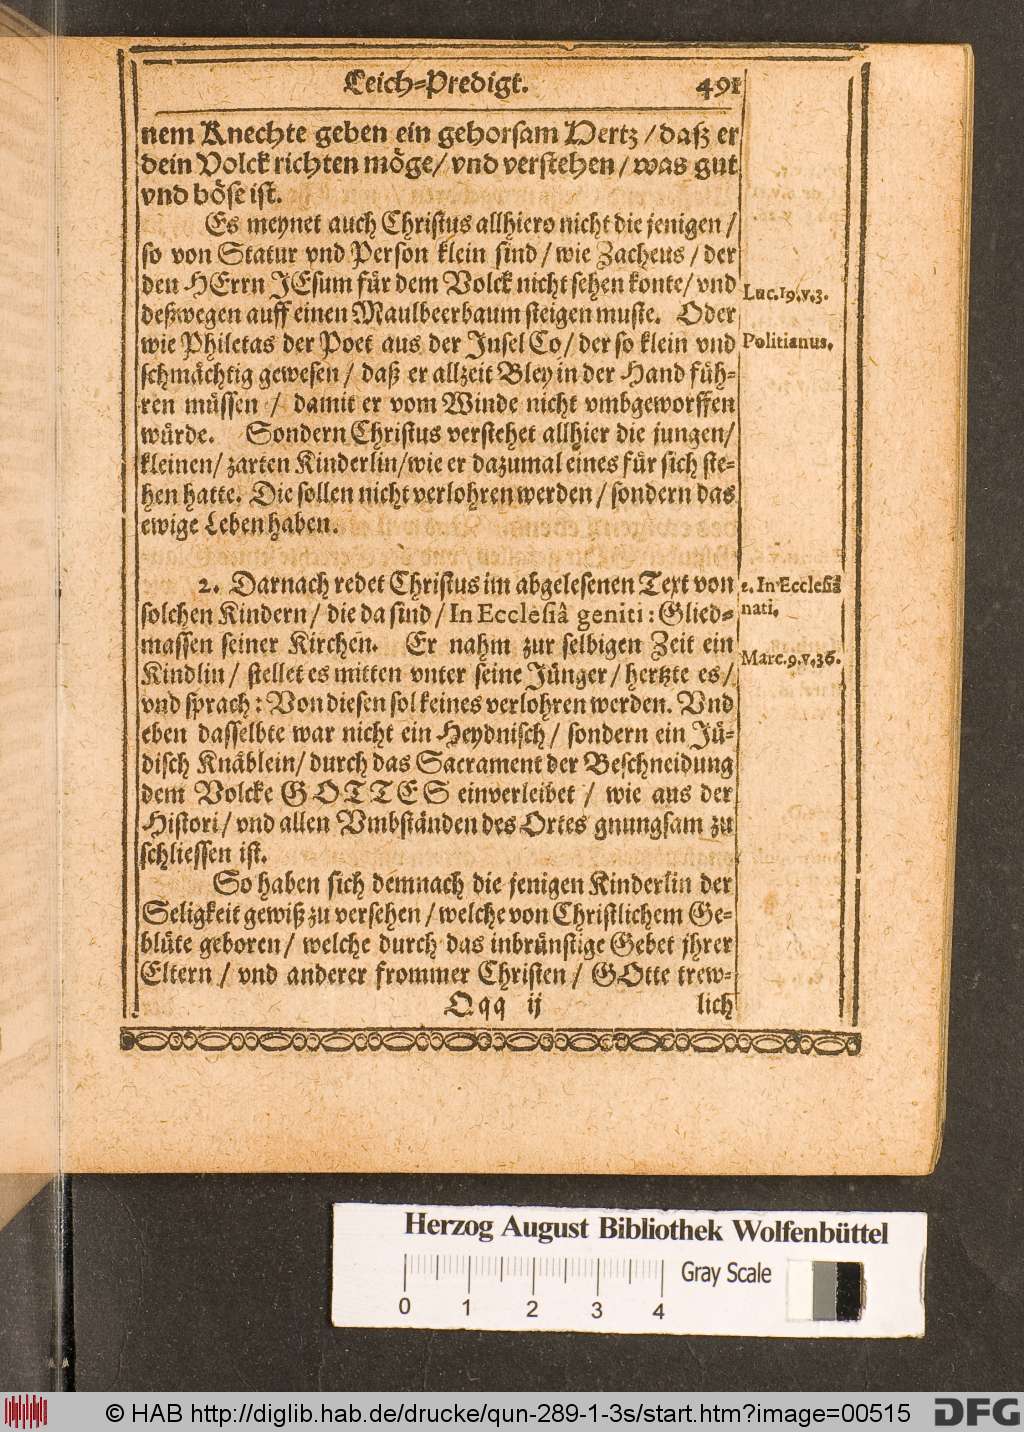 Leich-Predigt. 491
nem Knechte geben ein gehorsam Hertz / daß er
dein Volck richten möge / vnd verstehen / was gut
vnd böse ist.
Es meynet auch Christus allhiero nicht die jenigen /
so von Statur vnd Person klein sind / wie Zacheus / der
den HErrn JEsum für dem Volck nicht sehen konte / vnd
Luc. 19. v. 3.
deßwegen auff einen Maulbeerbaum steigen muste. Oder
wie Philetas der Poet aus der Insel Co / der so klein vnd
Politianus.
schmächtig gewesen / daß er allzeit Bley in der Hand füh-
ren müssen / damit er vom Winde nicht vmbgeworffen
würde. Sondern Christus verstehet allhier die jungen /
kleinen / zarten Kinderlin / wie er dazumal eines für sich ste-
hen hatte. Die sollen nicht verlohren werden / sondern das
ewige Leben haben.
2. Darnach redet Christus im abgelesenen Text von
2. In Ecclesiâ
solchen Kindern / die da sind / In Ecclesiâ geniti: Glied-
nati.
massen seiner Kirchen. Er nahm zur selbigen Zeit ein
Marc. 9. v. 36.
Kindlin / stellet es mitten vnter seine Jünger / hertzte es /
vnd sprach: Von diesen sol keines verlohren werden. Vnd
eben dasselbte war nicht ein Heydnisch / sondern ein Jü-
disch Knäblein / durch das Sacrament der Beschneidung
dem Volcke GOTTES einverleibet / wie aus der
Histori / vnd allen Vmbständen des Ortes gnungsam zu
schliessen ist.
So haben sich demnach die jenigen Kinderlin der
Seligkeit gewiß zu versehen / welche von Christlichem Ge-
blüte geboren / welche durch das inbrünstige Gebet jhrer
Eltern / vnd anderer frommer Christen / GOtte trew-
Qqq ij lich
Herzog August Bibliothek Wolfenbüttel
Gray Scale
0 1 2 3 4
© HAB http://diglib.hab.de/drucke/qun-289-1-3s/start.htm?image=00515
DFG